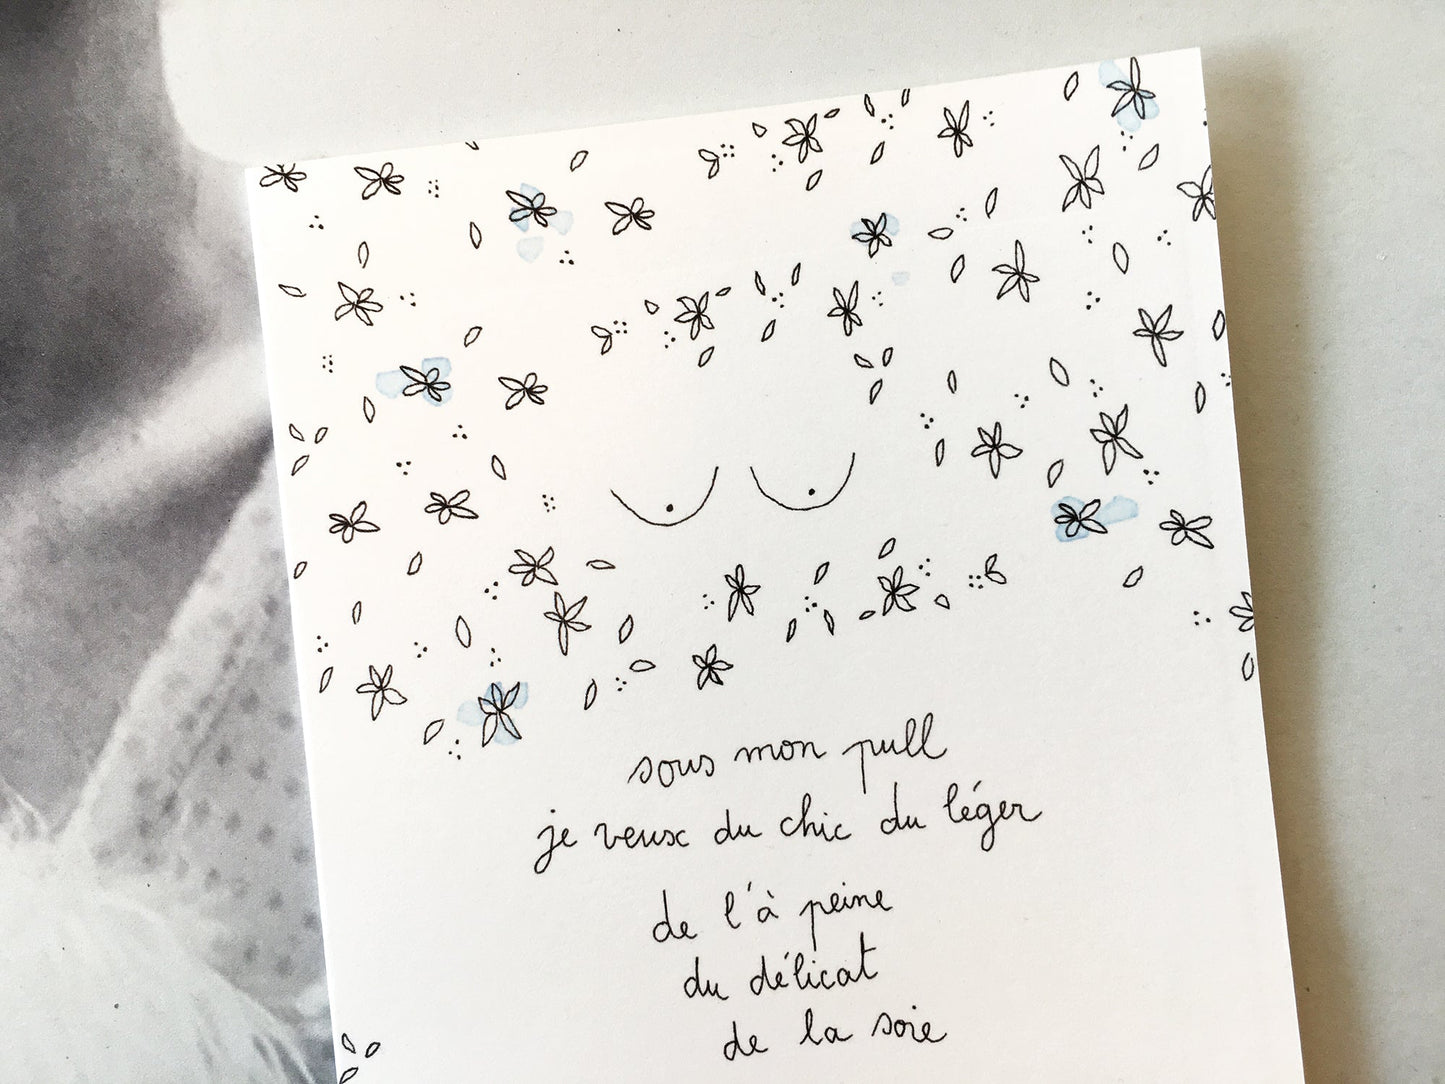 sous mon pull
je veux du chic du léger
de l'à peine
du délicat
de la soie